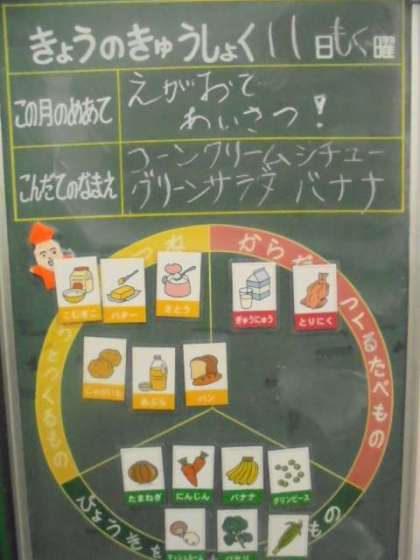 きょうのきゅうしょく 11日もく曜
この月のめあて
えがおで
あいさつ!
こんだてのなまえ
コーンクリームシチュー
グリーンサラダ バナナ
からだ
つくるたべもの
こむぎこ
バター
さとう
ぎゅうにゅう
とりにく
じゃがいも
あぶら
パン
たまねぎ
にんじん
バナナ
グリンピース
マッシュルーム
パセリ
もの